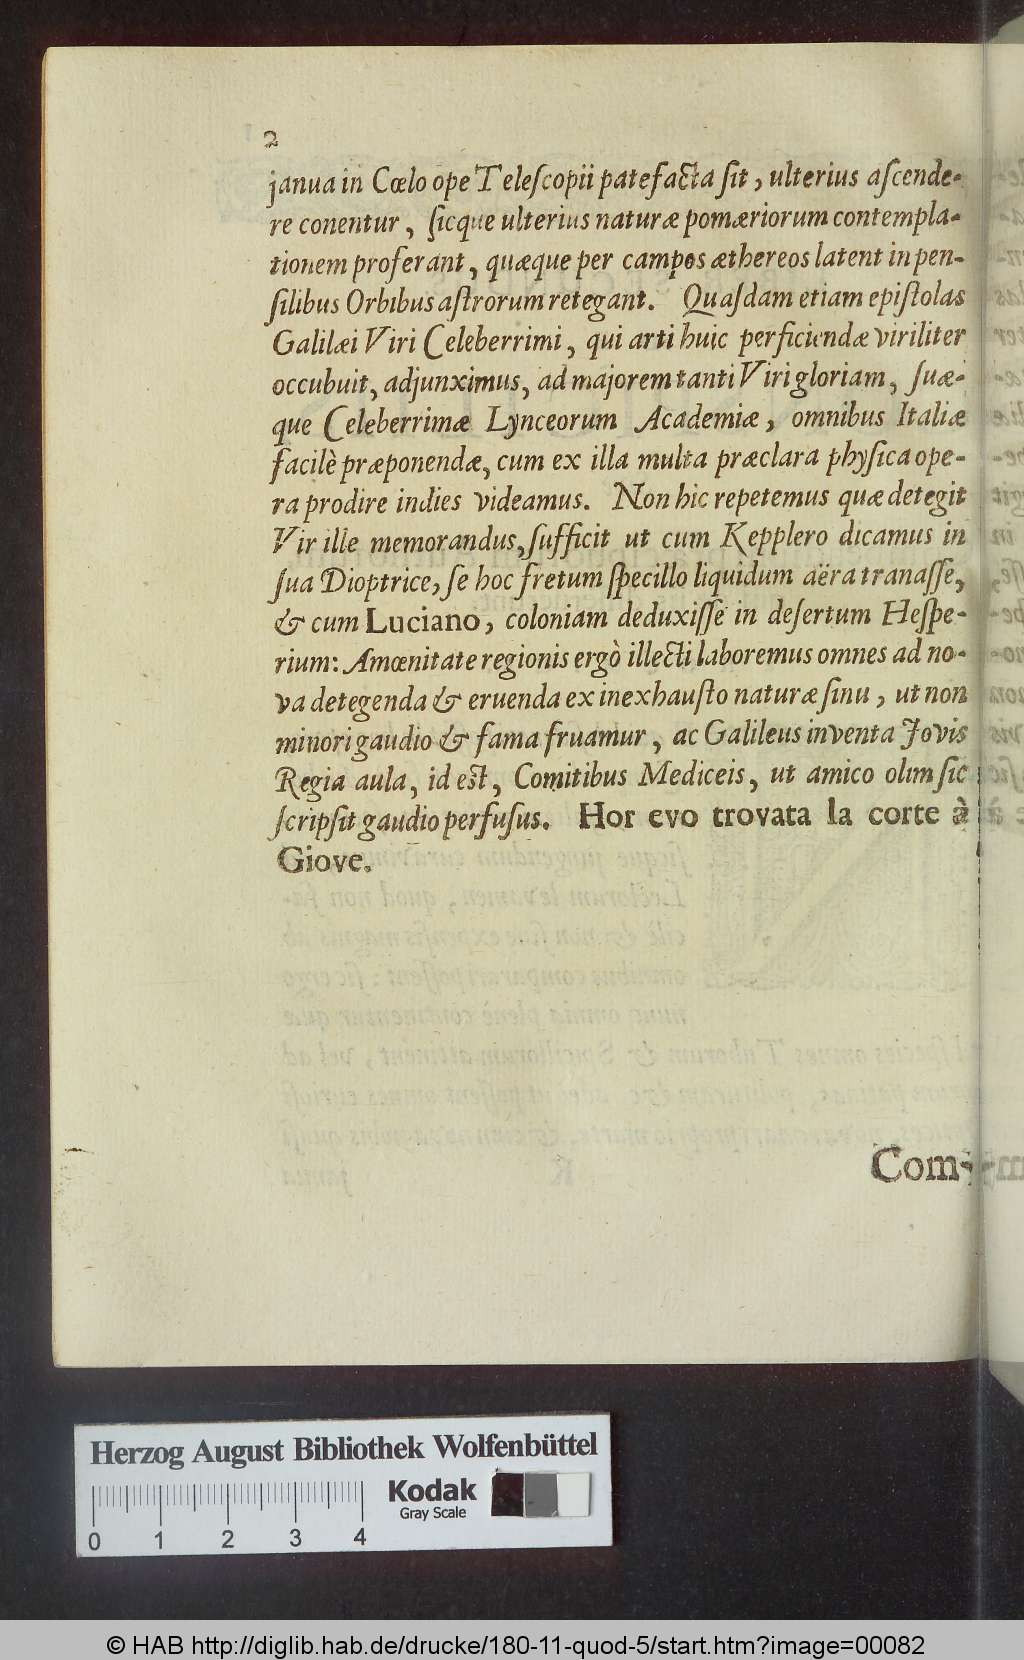 2
janua in Cœlo ope Teleſcopii patefacta ſit, ulterius aſcende-
re conentur, ſicque ulterius naturæ pomæriorum contempla-
tionem proferant, quæque per campos æthereos latent in pen-
ſilibus Orbibus aſtrorum retegant. Quaſdam etiam epiſtolas
Galilæi Viri Celeberrimi, qui arti huic perficiendæ viriliter
occubuit, adjunximus, ad majorem tanti Viri gloriam, ſuæ-
que Celeberrimæ Lynceorum Academiæ, omnibus Italiæ
facilè præponendæ, cum ex illa multa præclara phyſica ope-
ra prodire indies videamus. Non hic repetemus quæ detegit
Vir ille memorandus, ſufficit ut cum Kepplero dicamus in
ſua Dioptrice, ſe hoc fretum ſpecillo liquidum aëra tranaſſe,
& cum Luciano, coloniam deduxiſſe in deſertum Heſpe-
rium: Amœnitate regionis ergò illecti laboremus omnes ad no-
va detegenda & eruenda ex inexhauſto naturæ ſinu, ut non
minori gaudio & fama fruamur, ac Galileus inventa Jovis
Regia aula, id eſt, Comitibus Mediceis, ut amico olim ſic
ſcripſit gaudio perfuſus. Hor evo trovata la corte à
Giove.
Com-
Herzog August Bibliothek Wolfenbüttel
Kodak
Gray Scale
0 1 2 3 4
© HAB http://diglib.hab.de/drucke/180-11-quod-5/start.htm?image=00082